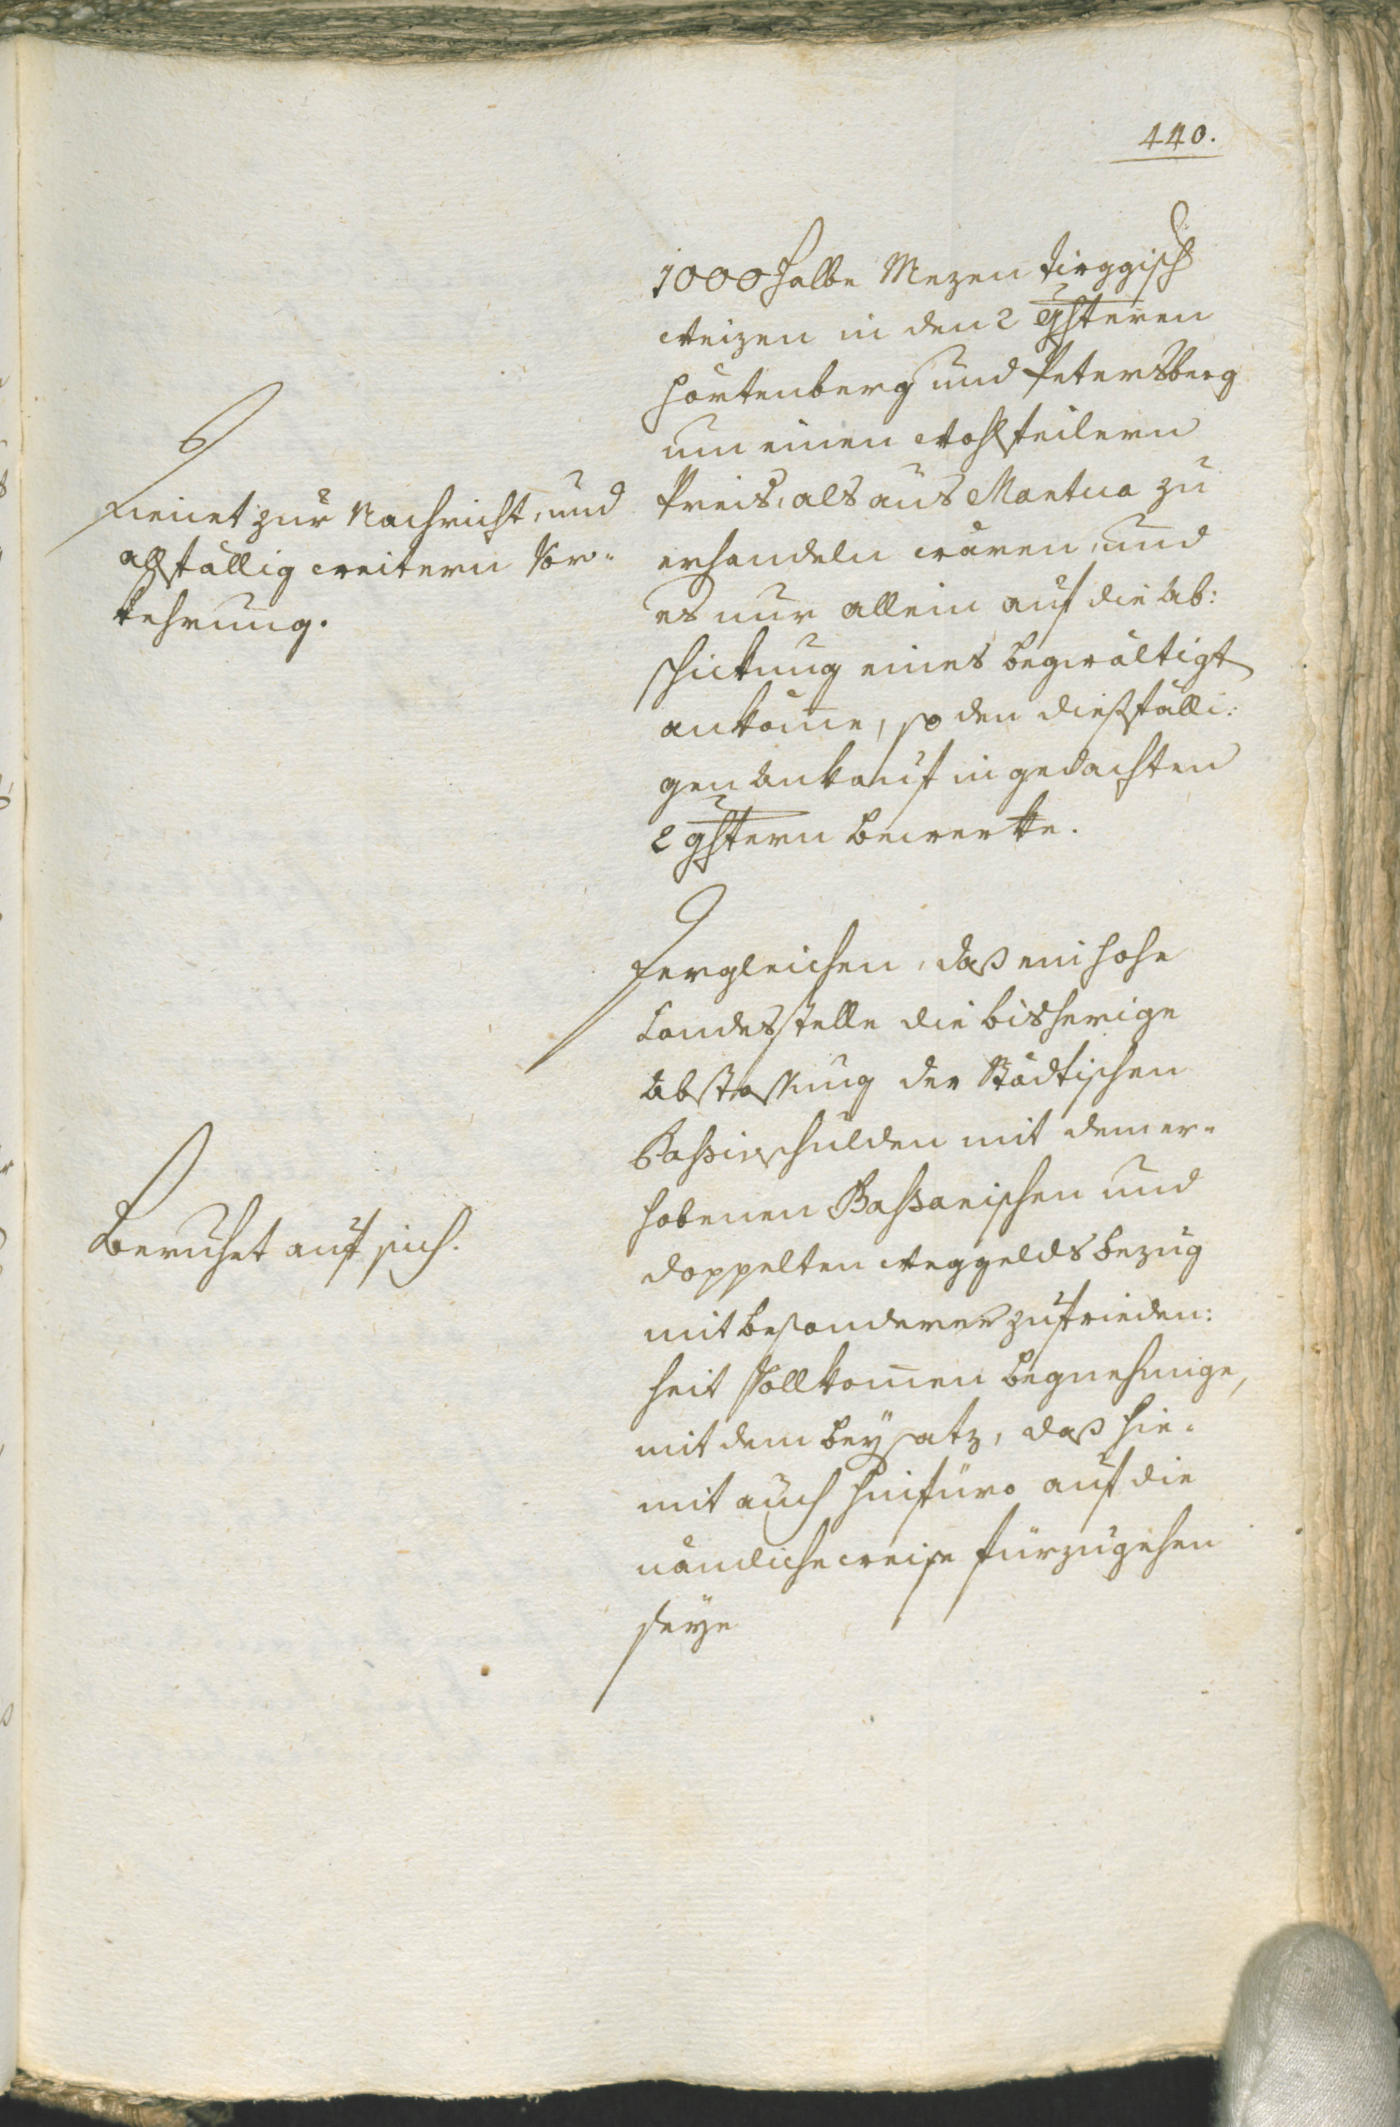 440.
1000 halbe Mezen türggisch
Weizen in den 2 Ghtern
Hörtenberg und Petersberg
um einen Wohlfeilern
Preis, als aus Mantua zu
erhandeln wären, und
es nur allein auf die Ab:
schickung eines begwältigt
ankom̅e, so den dießfälli:
gen Ankauf in gedachten
2 Ghtern bewerkte.
Dienet zur Nachricht, und
allfällig weitern Vor-
kehrung.
Dergleichen, daß ein hohe
Landesstelle die bisherige
Abstossung der Städtischen
Passivschulden mit dem er-
hobenen Bassanischen und
doppelten Weggelds bezug
mit besonderer zufrieden:
heit Vollkom̅en begnehmige,
mit dem beysatz, daß hie-
mit auch hinfüro auf die
nämliche Weise fürzugehen
seye
Beruhet auf sich.